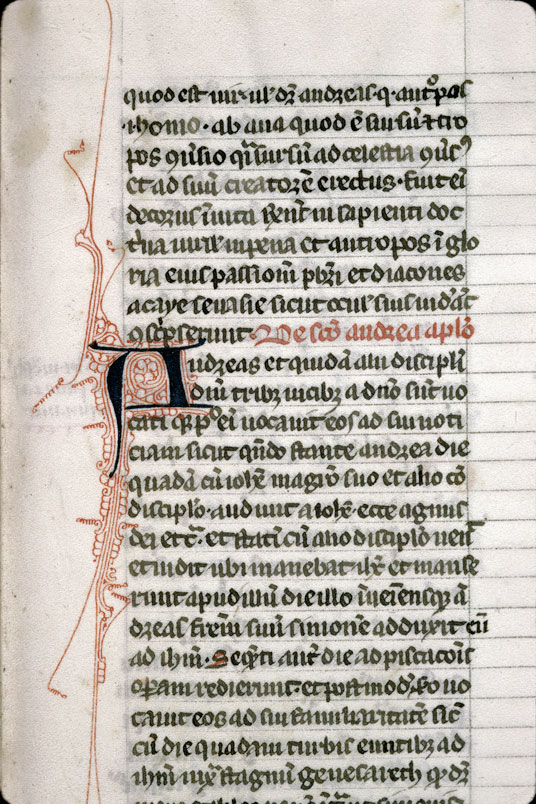 quod est uir. ul' dr̄ andreas. q. antͦpos
.i. homo. ab ana quod ē sursū ⁊ tro
pos ꝯuersio q̄i sursū ad celestia ꝯuersꝰ
et ad suū creatorē erectus. fuit eī
decorus ī uita
in sapienti doc
t'na uirilis in pena et antropos ī glo
ria eius passionē p̄bri et diacones
acaye
asie sicut
suis uidērāt
ꝯscͥpserunt. De scō andrea aplō
Andreas et quidā alii discipli
dn̄i tribꝫ uicibꝫ a dn̄o sūt uo
cati p̄mo eī uocauit eos ad sui noti
ciam sicut qn̄do stante andrea die
quadā cū ioh̄e magrō suo et alio cō
discipl'o. audiuit a ioh̄e. ecce agnus
dei etc̄. et statī cū alio discipl'o uenit
et uidit ubi manebat ih̄c et manse
runt apud illū die illo īueniensqꝫ ā
dreas frēm suū simonē adduxit eū
ad ih̄m. Seq̄nti aūt die ad piscac̄ois
oꝑam redierunt. et postmodū
uo
cauit eos ad sui familiaritatē sic̄
cū die quadam turbis euntibꝫ ad
ih̄m iuxͣ stagnū genesareth qd̄ dr̄